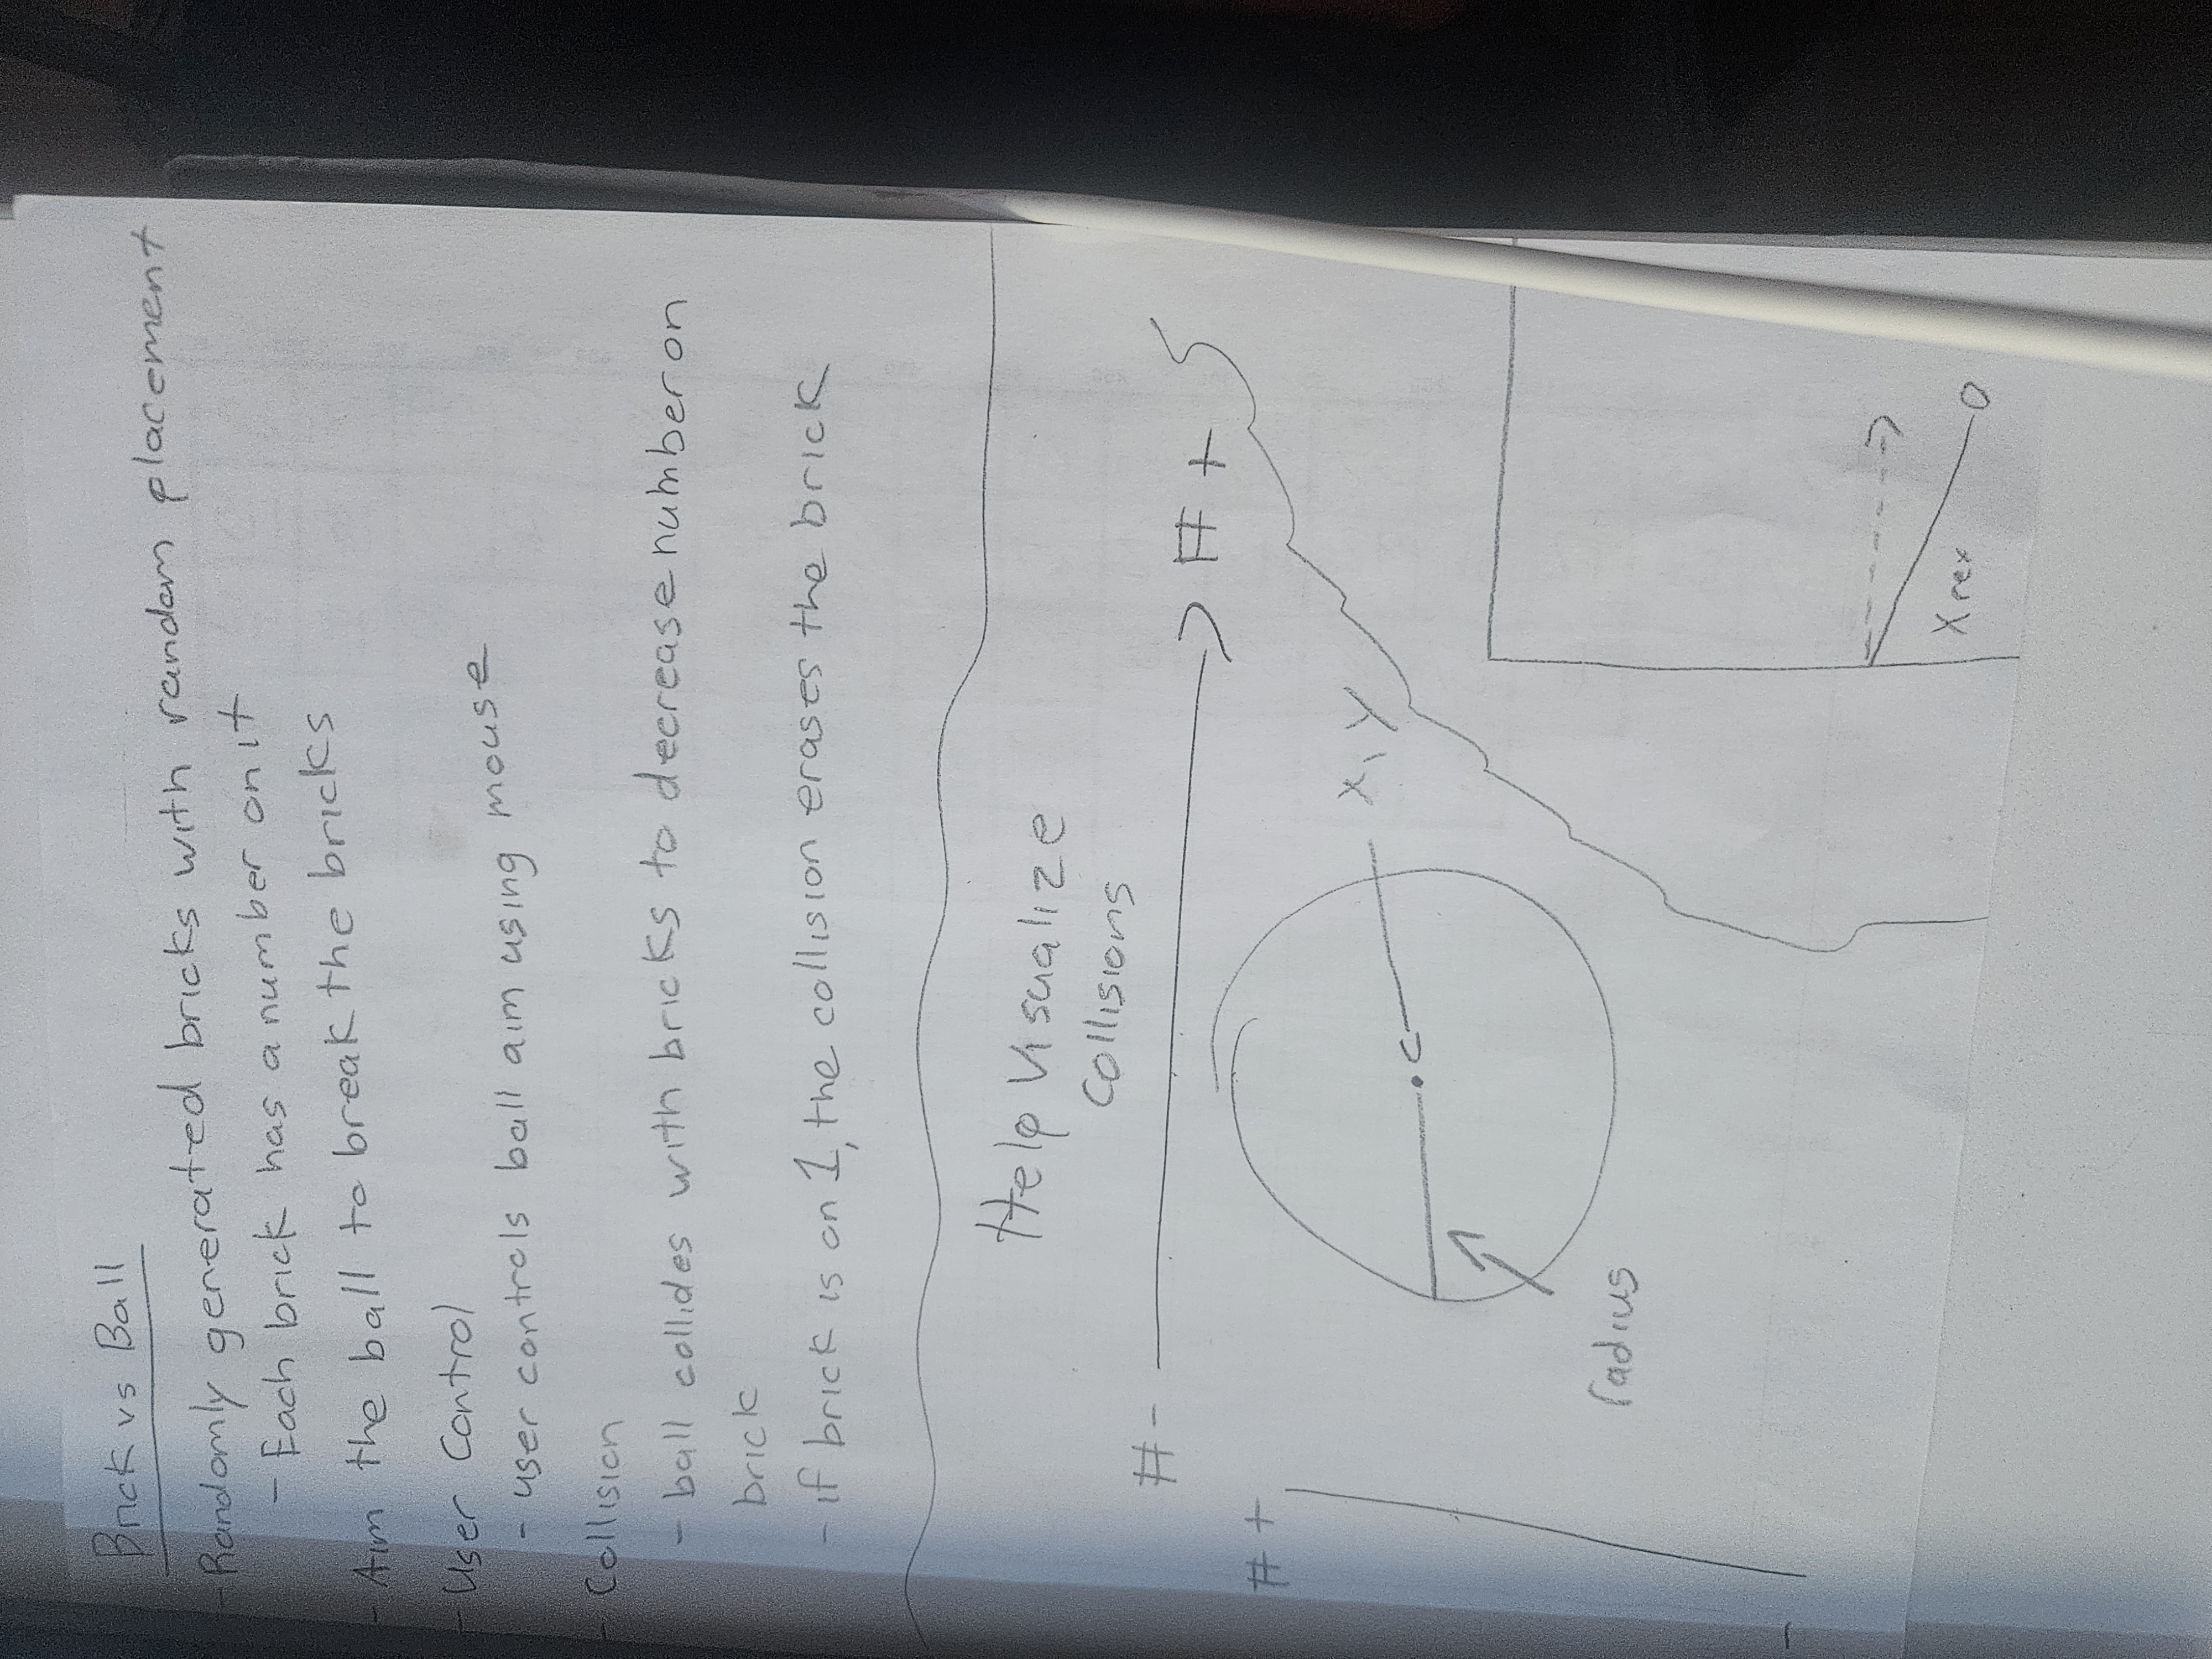 Brick vs Ball
- Randomly generated bricks with random placement
- Each brick has a number on it
- Aim the ball to break the bricks
- User Control
- user controls ball aim using mouse
- Collision
- ball collides with bricks to decrease number on
brick
- if brick is on 1, the collision erases the brick
Help Visualize
Collisions
# -
# +
# +
x, y
radius
-